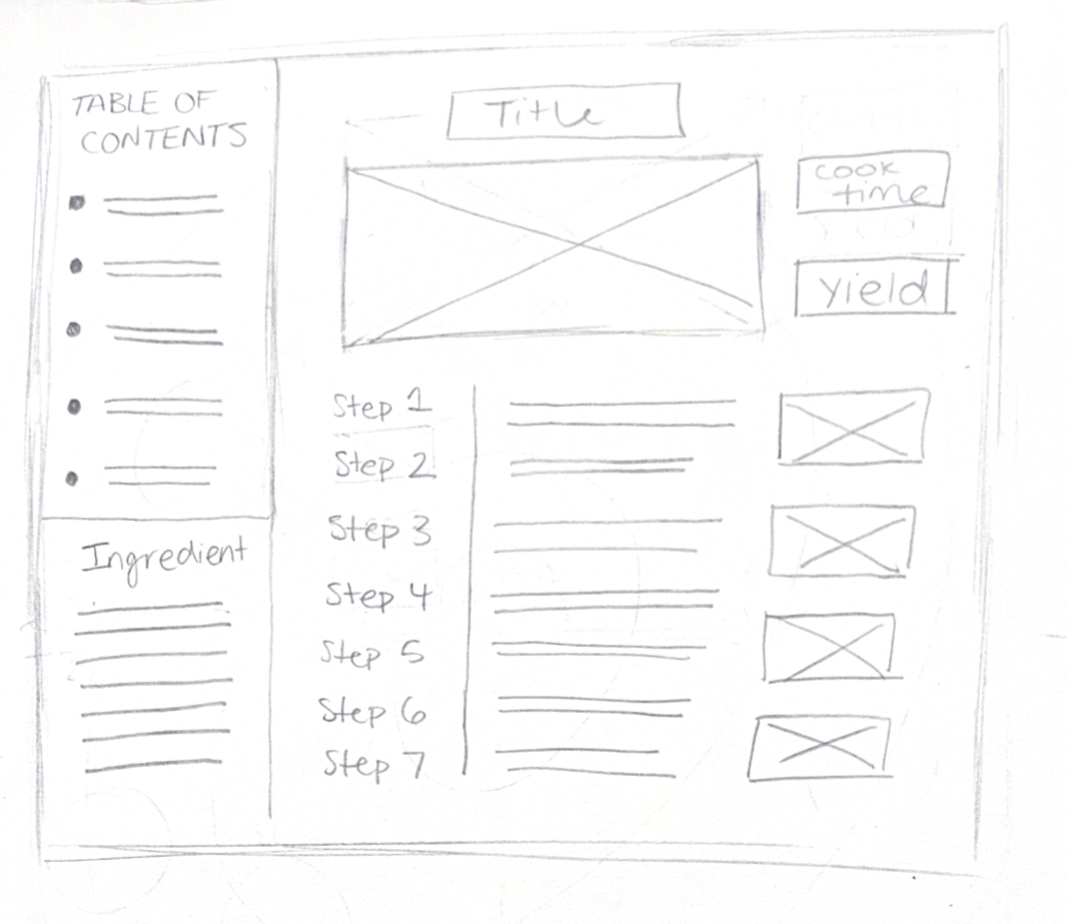 TABLE OF
CONTENTS
Ingredient
Title
cook
time
Yield
Step 1
Step 2
Step 3
Step 4
Step 5
Step 6
Step 7